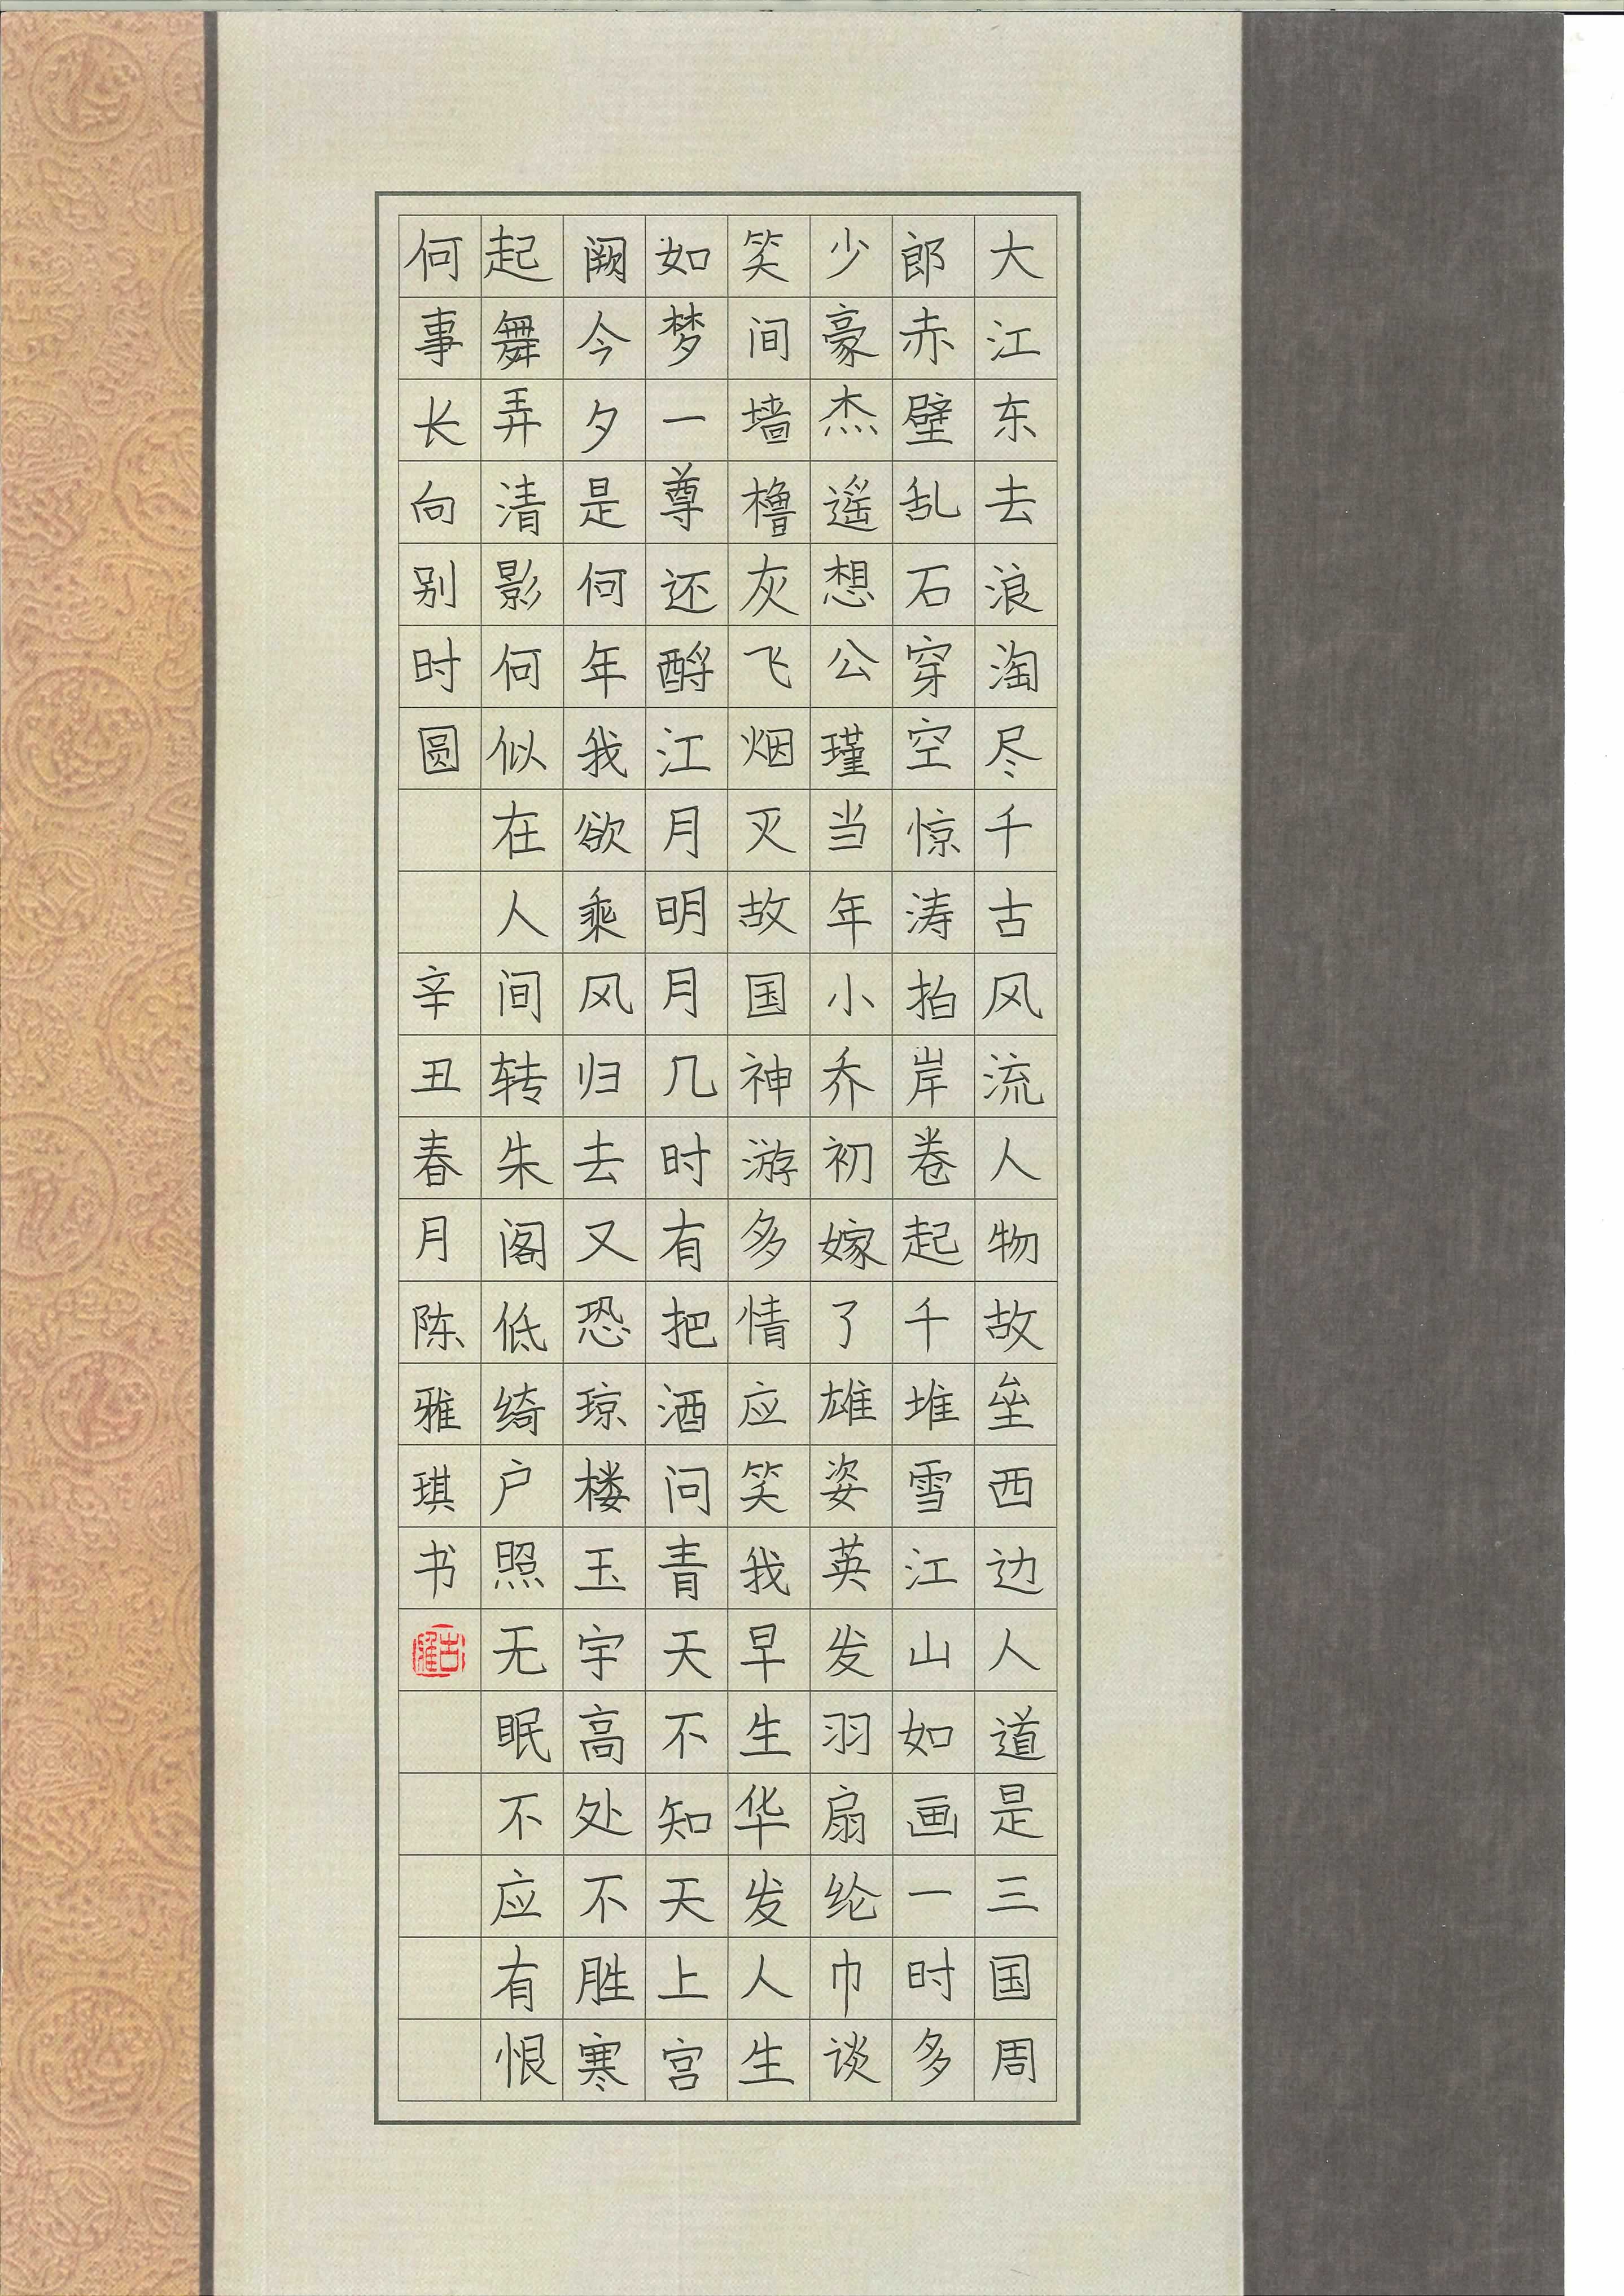 大江东去浪淘尽千古风流人物故垒西边人道是三国周
郎赤壁乱石穿空惊涛拍岸卷起千堆雪江山如画一时多
少豪杰遥想公瑾当年小乔初嫁了雄姿英发羽扇纶巾谈
笑间墙橹灰飞烟灭故国神游多情应笑我早生华发人生
如梦一尊还酹江月明月几时有把酒问青天不知天上宫
阙今夕是何年我欲乘风归去又恐琼楼玉宇高处不胜寒
起舞弄清影何似在人间转朱阁低绮户照无眠不应有恨
何事长向别时圆 辛丑春月陈雅琪书